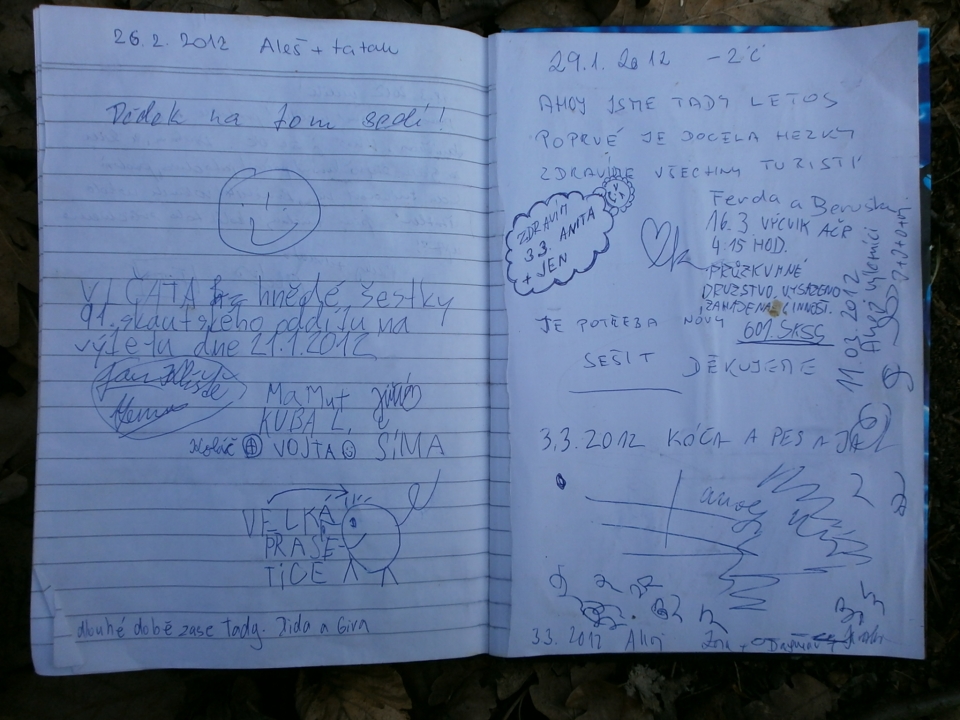 26. 2. 2012 Aleš + tatau
Dědek na tom sedí!
VLČATA hnědé šestky
91. skautského oddílu na
výletu dne 21.1.2012
MaMut
KUBA L.
VOJTA ☺ SÍMA
VELKÁ
PRASE-
TICE
dlouhé době zase tady. Zida a Gira
29.1. 2012 -2°C
AHOJ JSME TADY LETOS
POPRVÉ JE DOCELA HEZKY
ZDRAVÍME VŠECHNY TURISTI
ZDRAVIM
3.3. ANITA
+ JEN
Ferda a Beruška
16.3. VÝCVIK AČR
4:15 HOD.
PRŮZKUMNÉ
DRUŽSTVO, VYSAZENO
ZAHÁJENA ČINNOST.
601. SKSS
JE POTŘEBA NOVÝ
SEŠIT DĚKUJEME
11.03.2012
3.3.2012 KÓČA A PES A JÁ
3.3. 2012 Ahoj